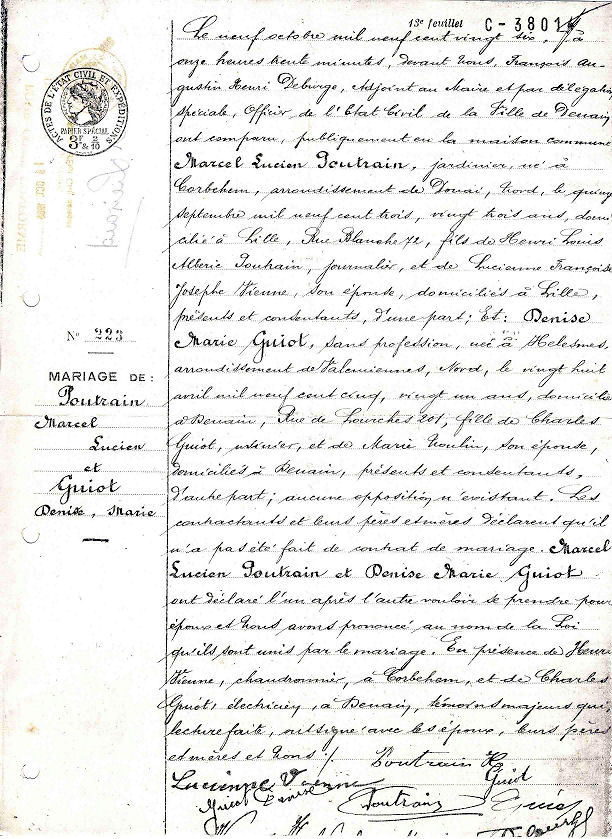 13e feuillet C-3801
Le neuf octobre mil neuf cent vingt six, à
onze heures trente minutes, devant Nous, François Au-
gustin Henri Deburge, Adjoint au Maire et par délégation
spéciale, Officier de l'Etat Civil de la Ville de Denain,
ont comparu, publiquement en la maison commune
Marcel Lucien Poutrain, jardinier, né à
Corbehem, arrondissement de Douai, Nord, le quinze
septembre mil neuf cent trois, vingt trois ans, domi
cilié à Lille, Rue Blanche 72, fils de Henri Louis
Alberic Poutrain, journalier, et de Lucienne Françoise
Josephe Vienne, son épouse, domiciliés à Lille,
présents et consentants, d'une part; Et: Denise
Marie Guiot, sans profession, née à Helesmes,
arrondissement de Valenciennes, Nord, le vingt huit
avril mil neuf cent cinq, vingt un ans, domiciliée
à Denain, Rue de Lourches 201, fille de Charles
Guiot, usinier, et de Marie Moulin, son épouse,
domiciliés à Denain, présents et consentants,
d'autre part; aucune opposition n'existant. Les
contractants et leurs pères et mères déclarent qu'il
n'a pas été fait de contrat de mariage. Marcel
Lucien Poutrain et Denise Marie Guiot
ont déclaré l'un après l'autre vouloir se prendre pour
époux et Nous avons prononcé au nom de la Loi
qu'ils sont unis par le mariage. En présence de Henri
Vienne, chaudronnier, à Corbehem, et de Charles
Guiot, électricien, à Denain, témoins majeurs qui,
lecture faite, ont signé avec les époux, leurs pères
et mères et Nous ./.
Poutrain H
Lucienne Vienne Guiot
Guiot Denise Poutrain
ACTES DE L'ETAT CIVIL ET EXPEDITIONS
PAPIER SPECIAL
3F & 2/10
N° 223
MARIAGE DE :
Poutrain
Marcel
Lucien
et
Guiot
Denise, Marie